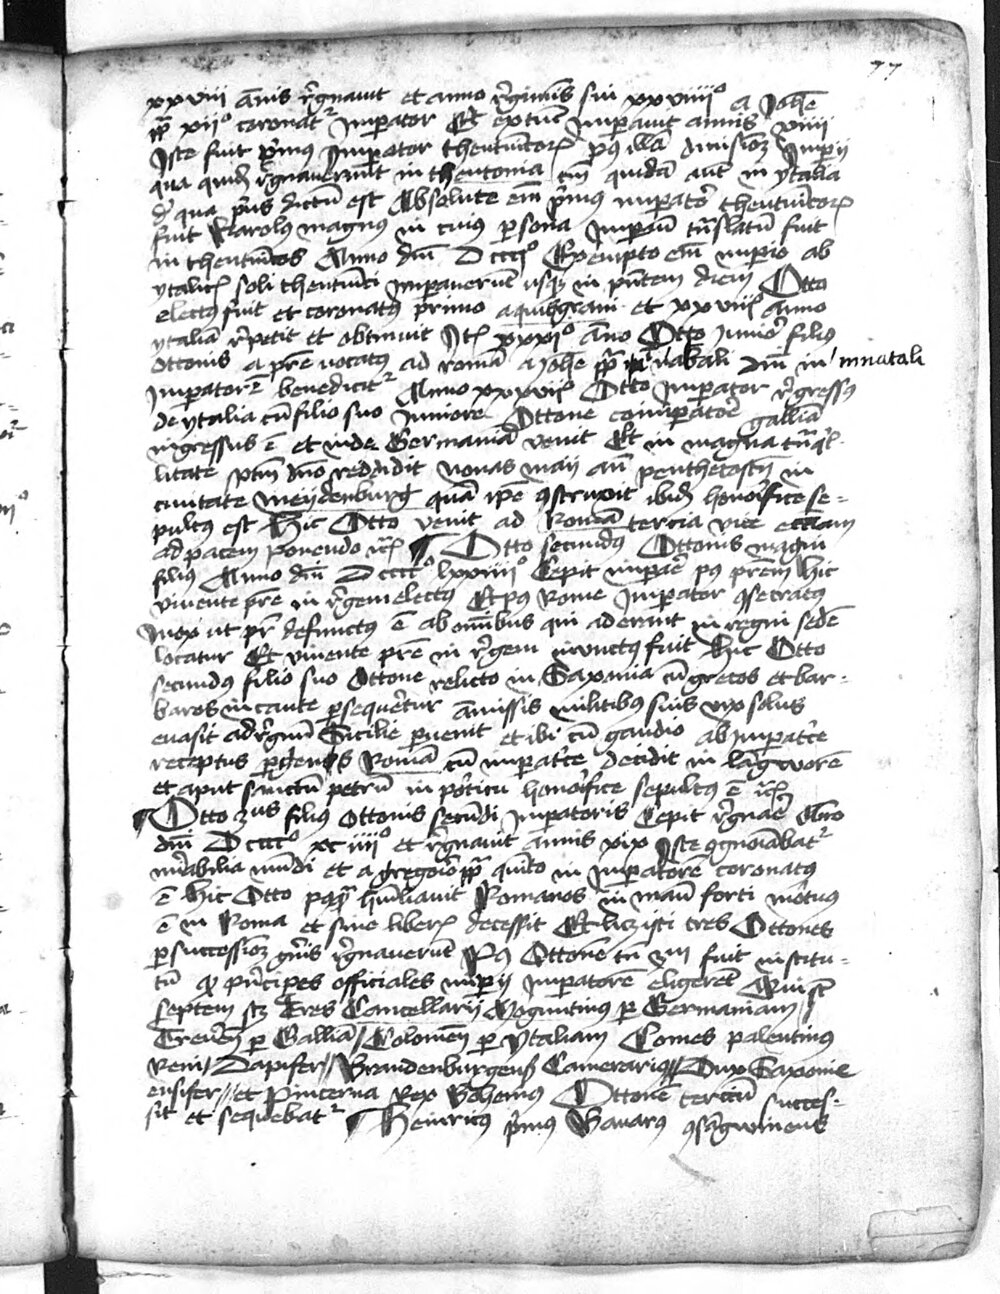 77
xxviii annis regnavit et anno regiminis sui xxviiiio a Johe
pp xiio coronatr Imperator Et extunc Imperavit annis viiii
Iste fuit primus Imperator theutunicor post illa divisioz Imperii
qua quidem regnaverunt in theutonia cum quidam aut in ytalia
de qua prius dictum est Absolute em primus imperator theutunicor
fuit Karolus magnus in cuius persona Imperium translatum fuit
in theutunicos Anno dni Dccco Exempto em imperio ab
ytalicis soli theutunici imperaverunt usque in presentem diem Otto
electus fuit et coronatus primo aquisgrani et xxviiio anno
ytaliam repetit et obtinuit Ite xxxio ano Otto junior filius
Ottonis a patre vocatus ad romam a Johe pp dni in innatali
Imperatore benedicitr Anno xxxviio Otto Imperator regressus
de ytalia cum filio suo Juniore Ottone conimperatore galliam
ingressus e et inde Germaniam venit Et in magna tranquil
litate spiritum dno reddidit nonas maii ante penthecosten in
civitate meydenburg quam ipse construxit ibidem honorifice se=
pultus est Hic Otto venit ad Romam tercia vice etiam
ad pacem ponendo etc Otto secundus Ottonis magni
filius Anno dni Dcccco lxxiiiio Cepit imperare post patrem hic
vivente patre in regem electus Et post Rome Imperator consecratus
Mox ut pater defunctus e ab omnibus qui aderant in regni sede
locatur Et vivente patre in regem inunctus fuit Hic Otto
secundus filio suo Ottone relicto in Saxonia cum grecos et bar=
baros incaute persequeretur amissis militibus suis vix solus
evasit ad regnum Sicilie pervenit et ibi cum gaudio ab imperatrice
receptus pergens Romam cum imperatrice decidit in languorem
et aput sanctum petrum in porticu honorifice sepultus e etc
Otto 3us filius Ottonis secundi Imperatoris Cepit regnare Ano
dni Dcccco xciiiio et regnavit annis xix Iste cognominabatr
mirabilia mundi et a gregorio pp quinto in Imperatorem coronatus
e Hic Otto postquam humiliavit Romanos in manu forti mortuus
e in Roma et sine liberis decessit Et licet isti tres Ottones
per successioz generis regnaverunt Post Ottonem tn 3m fuit institu=
tum quod principes officiales imperii Imperatorem eligerent Qui st
septem scz Tres Cancellarii Moguntinus per Germaniam /
Treverensis per Galliam / Coloniensis per Ytaliam Comes palentinus
Reni / Dapifer // Brandenburgensis Camerarius // Dux Saxonie
ensifer // et Pincerna Rex Bohemus Ottonem tercium succes=
sit et sequebatr Heinricus primus Bavarus consangwineus